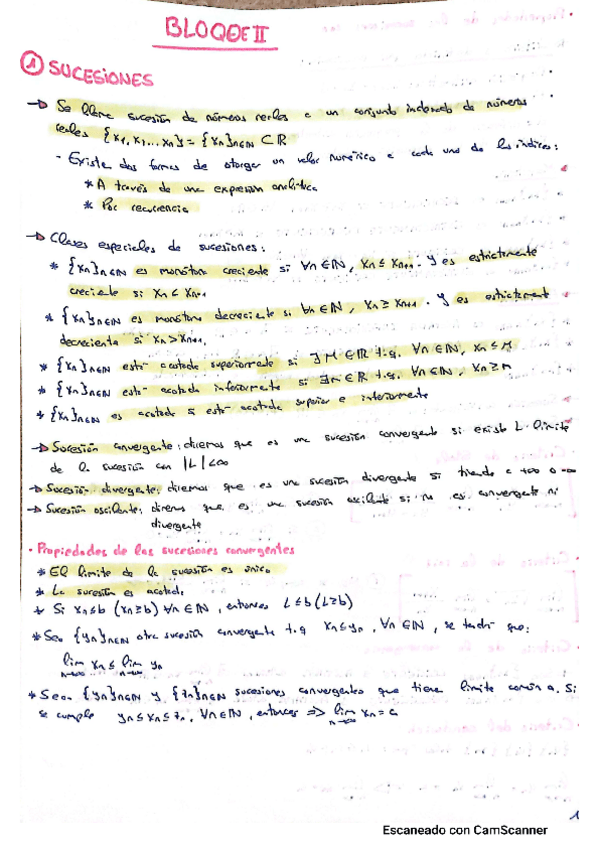 BLOQUE II
① SUCESIONES
→ Se llama sucesión de números reales a un conjunto indexado de números
reales {x₁, x₂, ... xₙ} = {xₙ}ₙ∈ℕ ⊂ ℝ
- Existe dos formas de otorgar un valor numérico a cada uno de los índices:
* A través de una expresión analítica
* Por recurrencia
→ Clases especiales de sucesiones:
* {xₙ}ₙ∈ℕ es monótona creciente si ∀n∈ℕ, xₙ ≤ xₙ₊₁. Y es estrictamente
creciente si xₙ < xₙ₊₁
* {xₙ}ₙ∈ℕ es monótona decreciente si ∀n∈ℕ, xₙ ≥ xₙ₊₁. Y es estrictamente
decreciente si xₙ > xₙ₊₁
* {xₙ}ₙ∈ℕ está acotada superiormente si ∃ M∈ℝ t.q. ∀n∈ℕ, xₙ ≤ M
* {xₙ}ₙ∈ℕ está acotada inferiormente si ∃ m∈ℝ t.q. ∀n∈ℕ, xₙ ≥ m
* {xₙ}ₙ∈ℕ es acotada si está acotada superior e inferiormente
→ Sucesión convergente: diremos que es una sucesión convergente si existe L límite
de la sucesión con |L| < ∞
→ Sucesión divergente: diremos que es una sucesión divergente si tiende a +∞ o -∞
→ Sucesión oscilante: diremos que es una sucesión oscilante si no es convergente ni
divergente
· Propiedades de las sucesiones convergentes
* El límite de la sucesión es único
* La sucesión es acotada
* Si xₙ ≤ b (xₙ ≥ b) ∀n∈ℕ, entonces L ≤ b (L ≥ b)
* Sea {yₙ}ₙ∈ℕ otra sucesión convergente t.q. xₙ ≤ yₙ, ∀n∈ℕ, se tendrá que:
lim xₙ ≤ lim yₙ
n→∞ n→∞
* Sean {yₙ}ₙ∈ℕ y {zₙ}ₙ∈ℕ sucesiones convergentes que tiene límite común a. Si
se cumple yₙ ≤ xₙ ≤ zₙ, ∀n∈ℕ, entonces ⇒ lim xₙ = a
n→∞
1
Escaneado con CamScanner